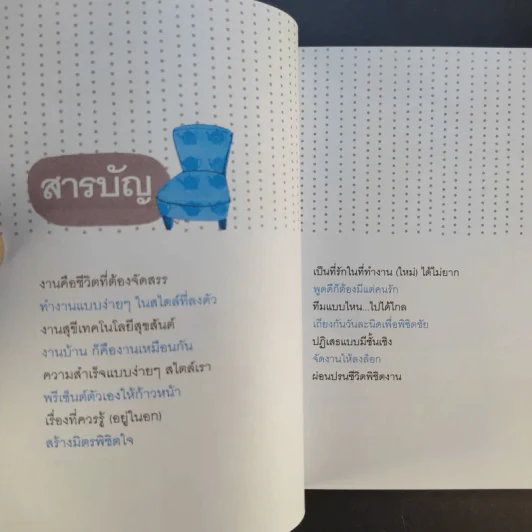 สารบัญ
งานคือชีวิตที่ต้องจัดสรร
ทำงานแบบง่ายๆ ในสไตล์ที่ลงตัว
งานสุขีเทคโนโลยีสุขสันต์
งานบ้าน ก็คืองานเหมือนกัน
ความสำเร็จแบบง่ายๆ สไตล์เรา
พรีเซ็นต์ตัวเองให้ก้าวหน้า
เรื่องที่ควรรู้ (อยู่ในอก)
สร้างมิตรพิชิตใจ
เป็นที่รักในที่ทำงาน (ใหม่) ได้ไม่ยาก
พูดดีก็ต้องมีแต่คนรัก
ทีมแบบไหน...ไปได้ไกล
เถียงกันวันละนิดเพื่อพิชิตชัย
ปฏิเสธแบบมีชั้นเชิง
จัดงานให้ลงล็อก
ผ่อนปรนชีวิตพิชิตงาน